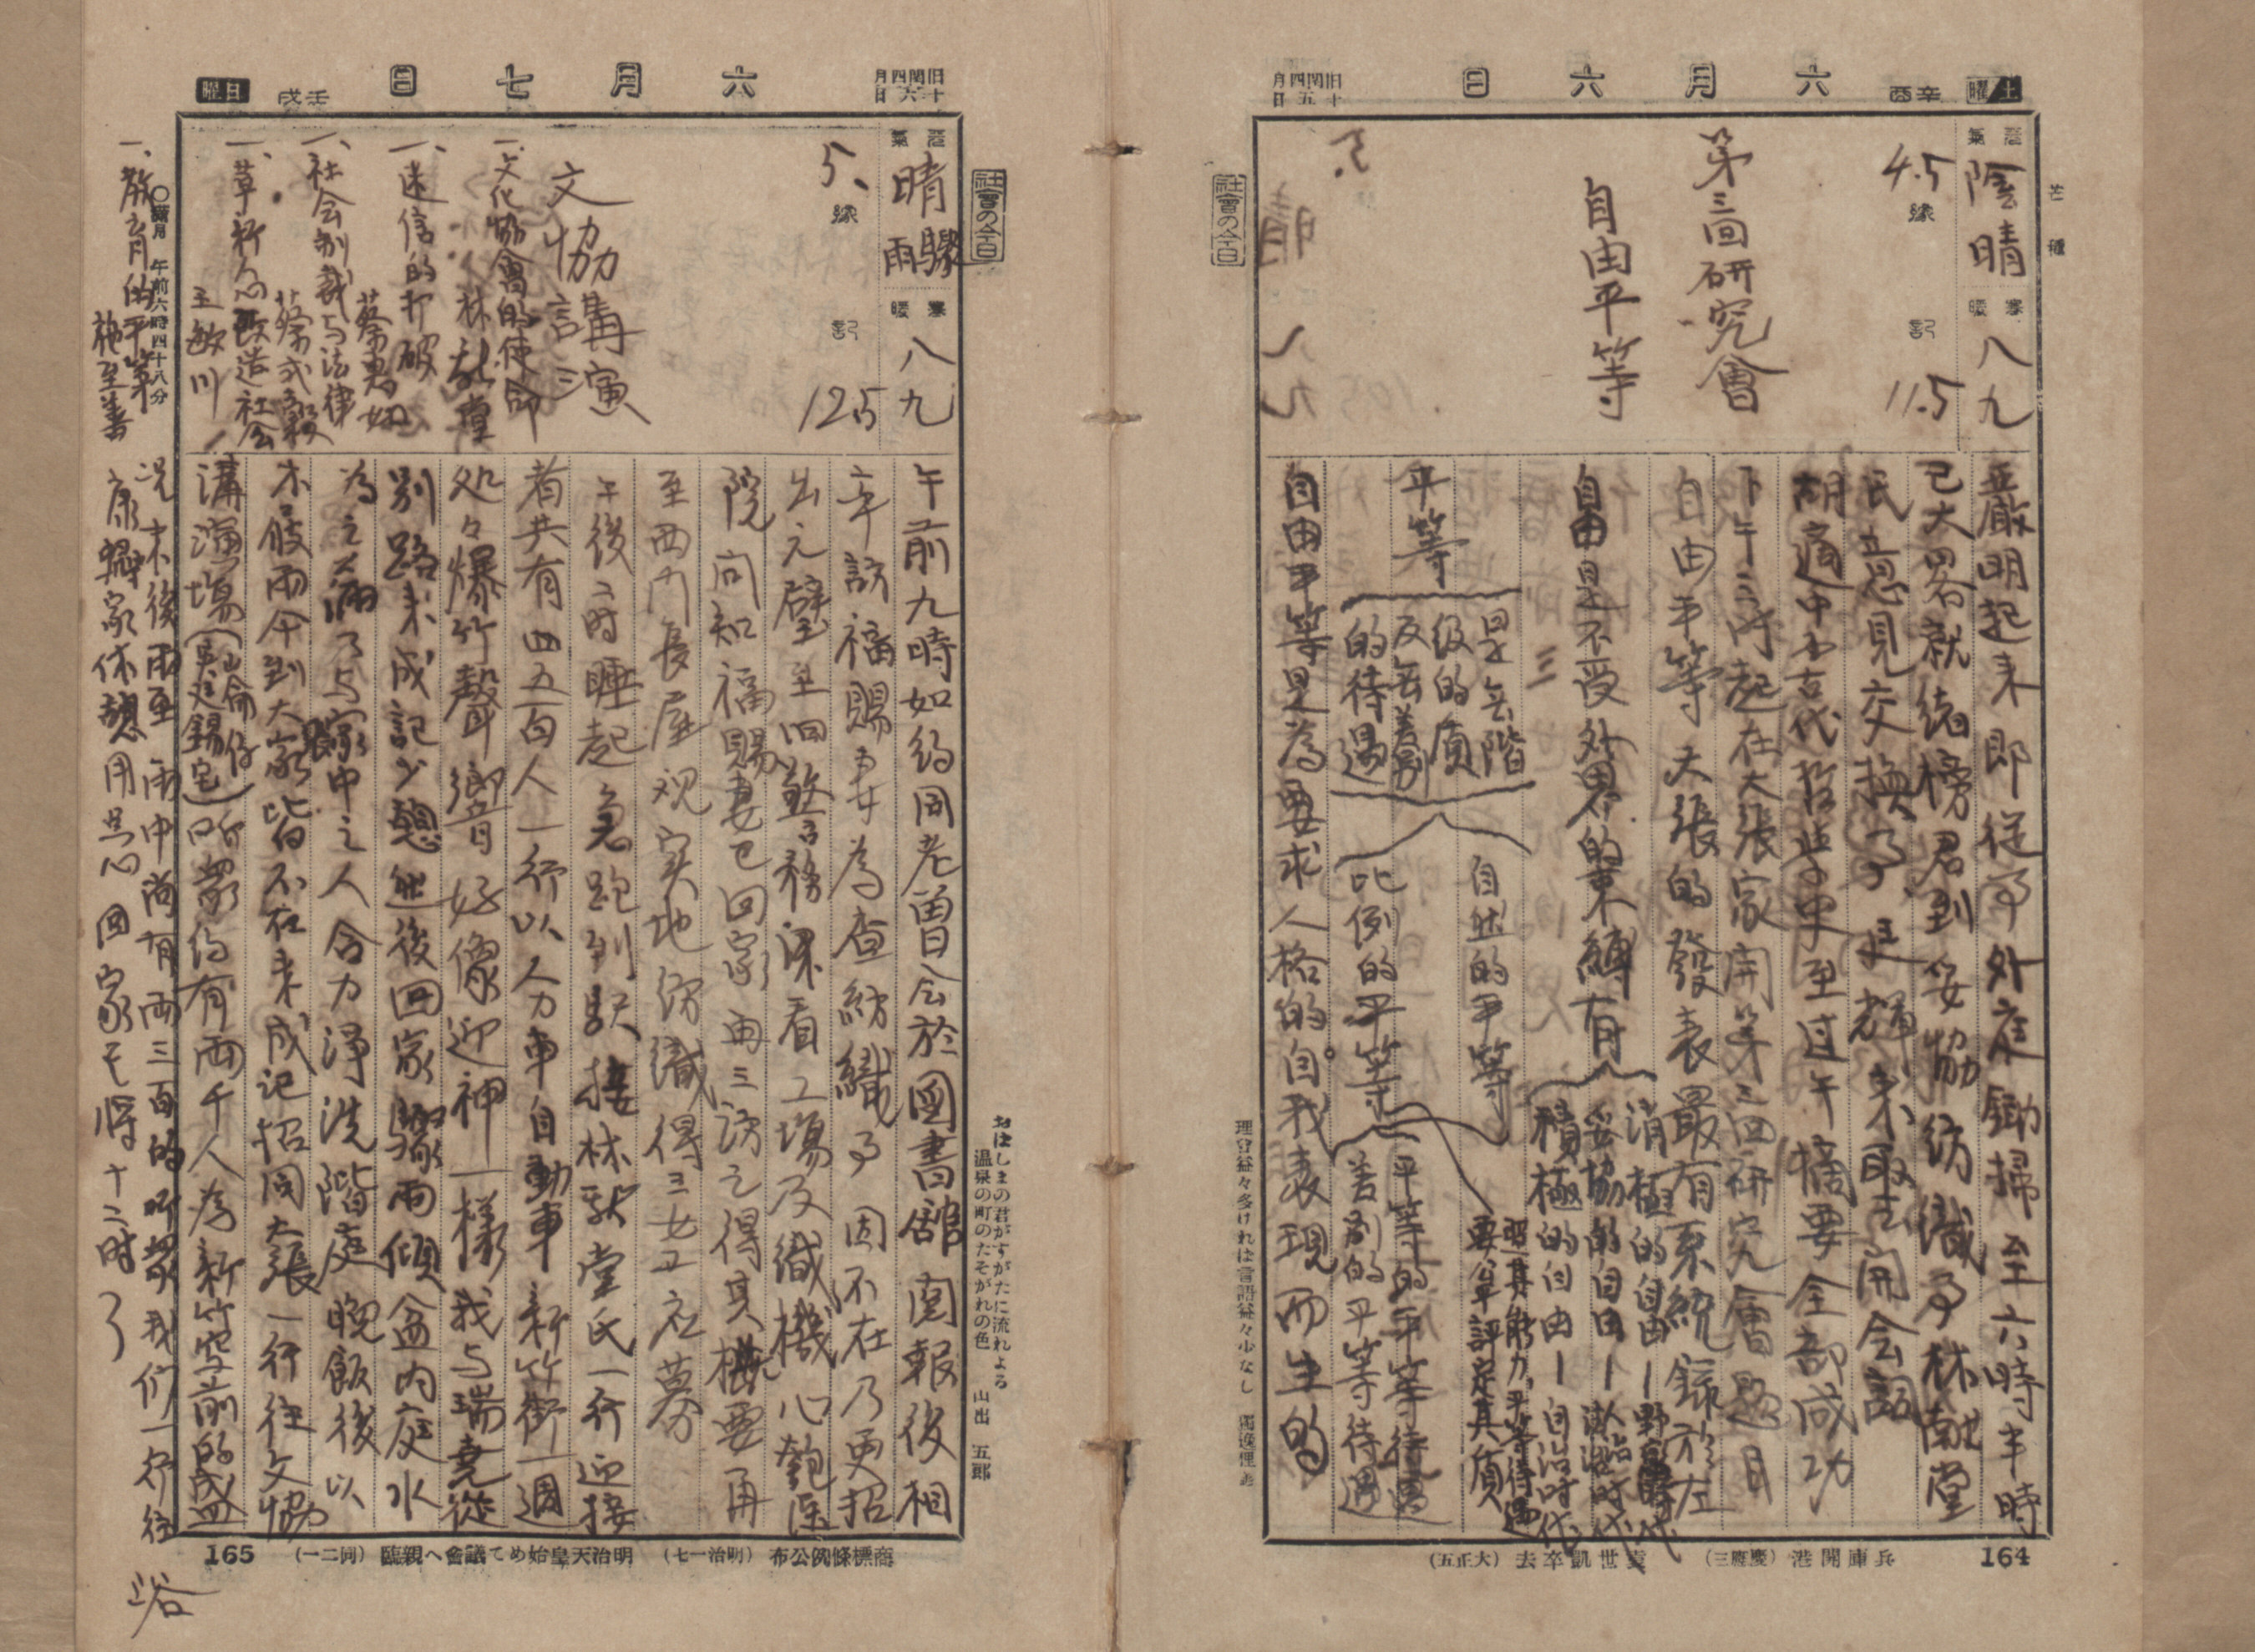 土曜
辛酉
六月六日
旧閏四月十五日
芒種
天氣
陰晴
寒暖
八九
4.5
豫記
11.5
第三回研究會
自由平等
嚴明起来即従事外庭鋤掃至六時半時
已大畧就緒榜君到妥協紡織事林献堂
氏意見交換了事更輝来取去開会詞
胡適中古代哲学史至过午摘要全部成功
下午三時起在大張家開第三回研究會題目
自由平等大張的發表最有系統錄於左
自由是不受外界的束縛有
消極的自由—野蛮時代
妥協的自由—人治時代
積極的自由—自治時代
平等
是無階級的質
及無差別的待遇
自然的平等
比例的平等
平等的平等待遇
差別的平等待遇
照其能力平等待遇
要算評定真質
自由平等是為要求人格的自我表現而生的
社會の今日
兵庫開港(慶應三)
袁世凱卒去(大正五)
164
日曜
壬戌
六月七日
旧閏四月十六日
天氣
晴驟雨
寒暖
八九
5、
豫記
12.5
文協講演
一、文化協會的使命
林献堂
一、迷信的打破
蔡惠如
一、社会制裁与法律
蔡式穀
一、革新心改造社会
王敏川
一、教育的平等
施至善
○滿月 午前六時四十八分
午前九時如約同老曾日会於圖書舘閲報後相
牽訪福賜妻為查紡織事因不在乃更招
出元壁至回警務課看工場及織機心匏医
院向知福賜妻已回家再三訪之得其概要再
至西門長屋視实地紡織得三女工衣募
午後二時睡起急跑到駅接林献堂氏一行迎接
者共有四五百人一行以人力車自動車新竹街一週
処々爆竹聲響好像迎神一樣我与瑞堯從
別路来成記少憩然後回家驟雨傾盆内庭水
為之満乃与家中之人合力淨洗階庭晚飯後以
木屐雨傘到大張家皆不在来成記招同大張一行往文協
講演場(崙仔吳廷錫宅)听衆約有兩千人為新竹空前的盛
况末後雨至雨中尚有兩三百的听衆我们一行往
康驛家休憩用点心回家已將十二時了
社會の今日
おほしまの君がすがたに流れよる
温泉の町のたそがれの色 山出 五郎
商標條例公布(明治一七)
明治天皇始めて議會へ親臨(同二一)
165